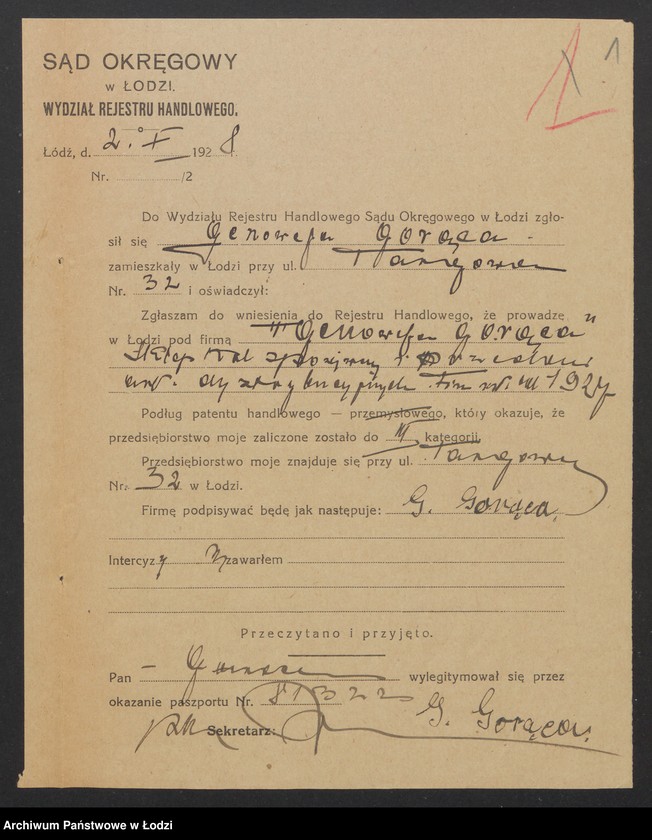 1
1
SĄD OKRĘGOWY
w ŁODZI.
WYDZIAŁ REJESTRU HANDLOWEGO.
Łódź, d. 2. X 1928 r.
Nr. /2
Do Wydziału Rejestru Handlowego Sądu Okręgowego w Łodzi zgło-
sił się Genowefa Gorąca -
zamieszkały w Łodzi przy ul. Targowa
Nr. 32 i oświadczył:
Zgłaszam do wniesienia do Rejestru Handlowego, że prowadzę
w Łodzi pod firmą "Genowefa Gorąca"
Sklep spożywczy i
art. 1927
Podług patentu handlowego — przemysłowego, który okazuje, że
przedsiębiorstwo moje zaliczone zostało do III kategorji.
Przedsiębiorstwo moje znajduje się przy ul. Targowa
Nr. 32 w Łodzi.
Firmę podpisywać będę jak następuje: G. Gorąca.
Intercyzy zawarłem
Przeczytano i przyjęto.
Pan - wylegitymował się przez
okazanie paszportu Nr. 81322
Sekretarz: G. Gorąca.
Archiwum Państwowe w Łodzi